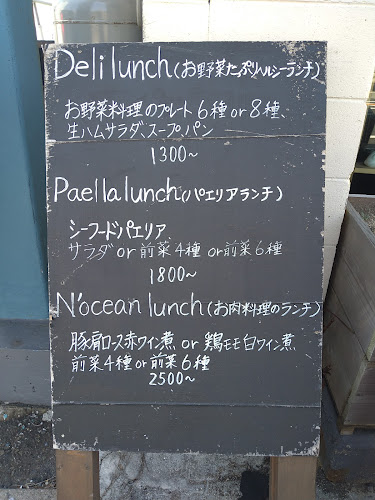 Deli lunch(お野菜たっぷりヘルシーランチ)
お野菜料理のプレート6種or8種、
生ハムサラダ、スープ、パン
1300~
Paella lunch(パエリアランチ)
シーフードパエリア
サラダ or 前菜4種 or前菜6種
1800~
N'ocean lunch(お肉料理のランチ)
豚肩ロース赤ワイン煮 or 鶏モモ白ワイン煮
前菜4種or前菜6種
2500~